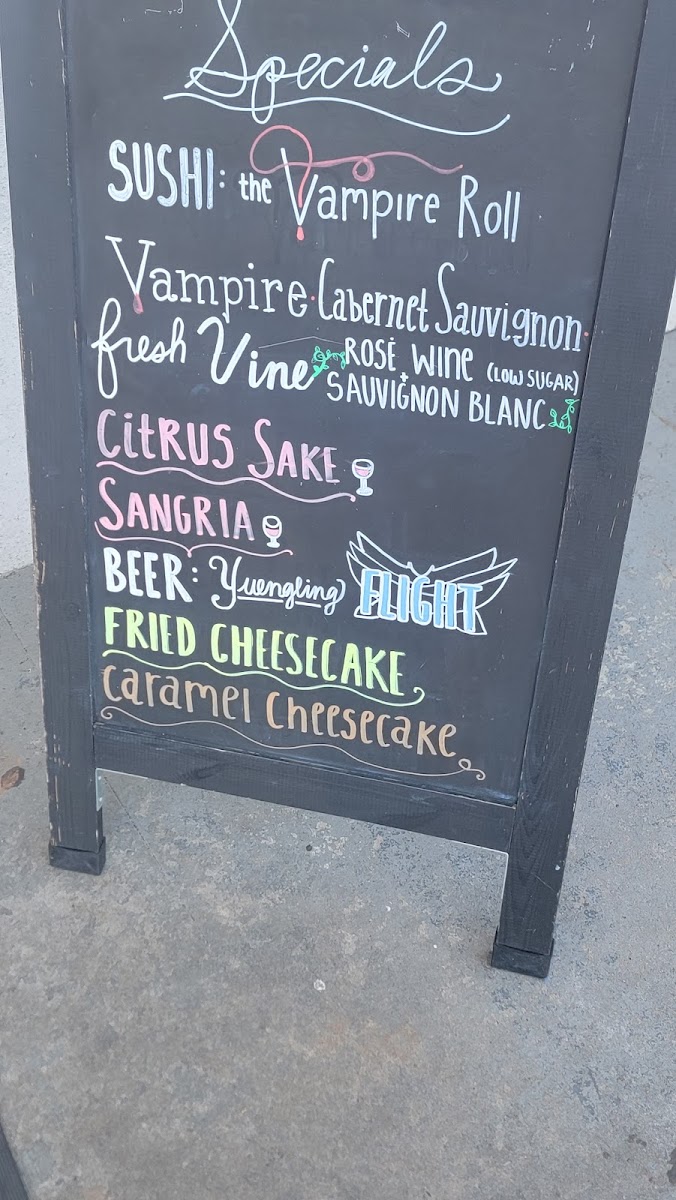 Specials
SUSHI: the Vampire Roll
Vampire · Cabernet Sauvignon ·
fresh Vine ROSÉ WINE (LOW SUGAR)
+ SAUVIGNON BLANC
CITRUS SAKE
SANGRIA
BEER: Yuengling FLIGHT
FRIED CHEESECAKE
caramel cheesecake